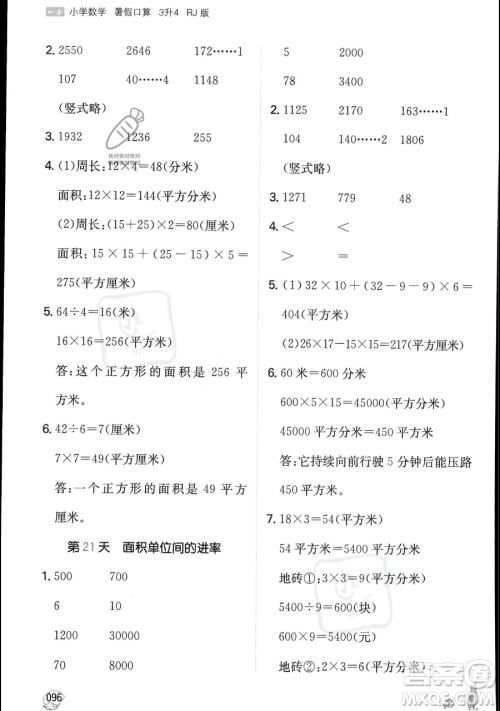 一本 小学数学 暑假口算 3升4 RJ 版
2. 2550 2652 172……1
107 40 144
(竖式略)
3. 1932 1236 255
4. (1)周长:12×4=48(分米)
面积:12×12=144(平方分米)
(2)周长:(15+25)×2=80(厘米)
面积:15×15+(25-15)×5=
275(平方厘米)
5. 64÷4=16(米)
16×16=256(平方米)
答:这个正方形的面积是 256 平
方米。
6. 42÷6=7(厘米)
7×7=49(平方厘米)
答:一个正方形的面积是 49 平方
厘米。
第 21 天 面积单位间的进率
1. 500 700
6 10
1200 30000
70 8000
096
2. 1125 2170 163……1
104 140……2 1806
(竖式略)
3. 1271 779 48
4. < <
> =
5. (1)32×10+(32-9-9)×6=
404(平方分米)
(2)16×15-23=217(平方厘米)
6. 60 米=600 分米
600×5×15=45000(平方分米)
45000 平方分米=450 平方米
答:它持续向前行驶 5 分钟后能压路
450 平方米。
7. 18×3=54(平方米)
54 平方米=5400 平方分米
地砖①:3×3=9(平方分米)
5400÷9=600(块)
600×9=5400(元)
地砖②:6×3=18(平方分米)
快对快对快对